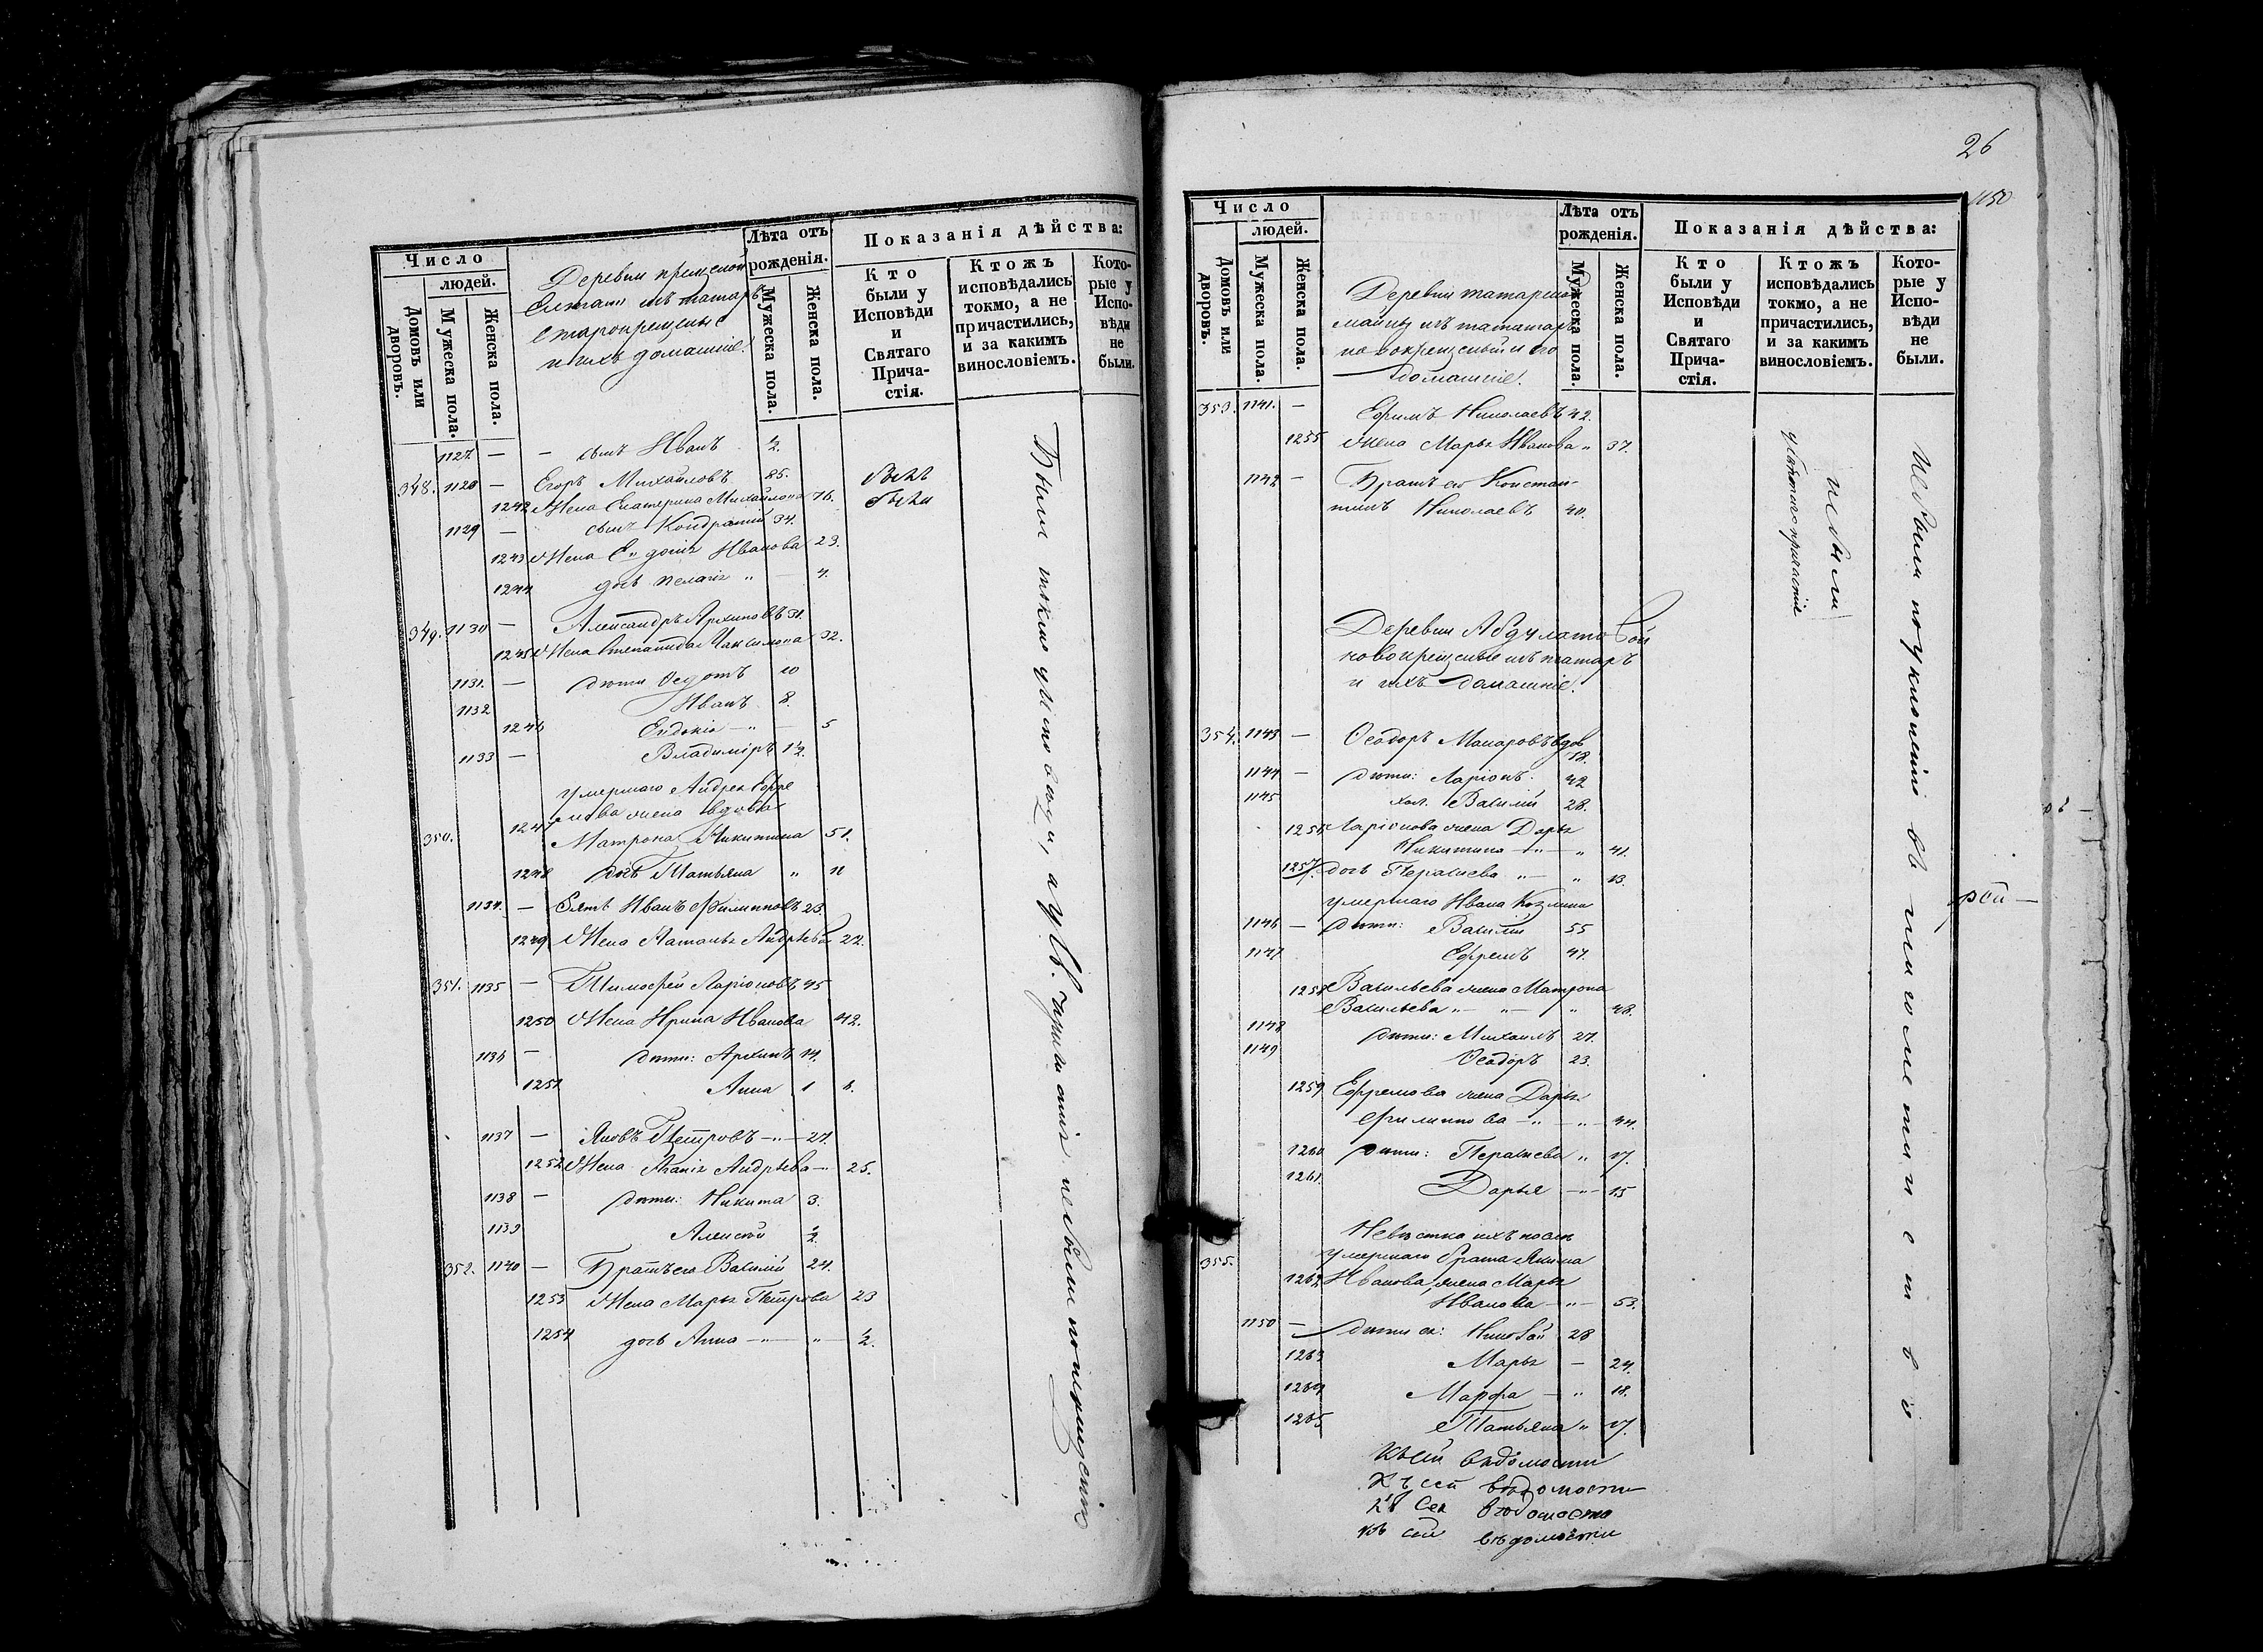 Число
людей.
Домовъ или дворовъ.
Мужеска пола.
Женска пола.
Деревни
Елтани изъ татаръ
старокрещеные
и ихъ домашніе.
Лѣта отъ
рожденія.
Мужеска пола.
Женска пола.
Показанія дѣйства:
Кто
были у
Исповѣди
и
Святаго
Прича-
стія.
Ктожъ
исповѣдались
токмо, а не
причастились,
и за какимъ
винословіемъ.
Кото-
рые у
Испо-
вѣди
не
были.
1127 — — сынъ Иванъ ½.
348. 1128 — Егоръ Михайловъ 85. былъ
1242 Жена Екатерина Михайлова 76. была
1129 — сынъ Кондратій 34.
1243 Жена Евдокія Иванова 23.
1244 дочь Пелагія „ — 4.
349. 1130 — Александръ Архиповъ 31.
1245 Жена Степанида Максимова 32.
1131. — дѣти Ѳедотъ 10
1132 Иванъ 8.
1246 Евдокія — „ — 5
1133 — Владиміръ 1½.
умершаго Андрея Ефре
мова жена вдова
350. 1247 Матрона Никитина 51.
1248 дочь Татьяна „ 11
1134. — Зять Иванъ Филипповъ 23.
1249 Жена Наталья Андрѣева 22.
351. 1135 — Тимофей Ларіоновъ 45
1250 Жена Ирина Иванова 42.
1136 — дѣти: Архипъ 14.
1251 Анна
1137 — Яковъ Петровъ — „ — 27.
1252 Жена Андрѣева — 25.
1138 — дѣти: Никита 3.
1139 Алексѣй ½
352. 1140 — Братъ его Василій 24.
1253 Жена Марья Петрова 23
1254 дочь Анна — „ — „ ½.
Были токмо у исповѣди, а у Св. Причастія не были по опущенію
26
1150
Число
людей.
Домовъ или дворовъ.
Мужеска пола.
Женска пола.
Деревни татарской
Майны изъ татаръ
новокрещеный и его
домашніе.
Лѣта отъ
рожденія.
Мужеска пола.
Женска пола.
Показанія дѣйства:
Кто
были у
Исповѣди
и
Святаго
Прича-
стія.
Ктожъ
исповѣдались
токмо, а не
причастились,
и за какимъ
винословіемъ.
Кото-
рые у
Испо-
вѣди
не
были.
353. 1141. — Ефимъ Николаевъ 42.
1255 Жена Марья Иванова „ 37.
1142 — Братъ его Констан-
тинъ Николаевъ 40.
Деревни Абдулатовой
новокрещеные изъ татаръ
и ихъ домашніе.
354. 1143 — Ѳеодоръ Макаровъ вдов
78.
1144 — дѣти: Ларіонъ 42
1145 хол. Василій 28.
1256 Ларіонова жена Дарья
Никитина — „ — „ 41.
1257. дочь Параскева „ — „ 13.
умершаго Ивана Козмина
1146 — дѣти: Василій 55
1147 Ефремъ 47.
1258 Васильева жена Матрона
Васильева „ — „ — „ 48.
1148 дѣти: Михаилъ 27.
1149 Ѳеодоръ 23.
1259 Ефремова жена Дарья
Филиппова — „ — „ — 44.
1260 дѣти: Параскева „ 17.
1261. Дарья — „ — 15
Невѣстка ихъ послѣ
умершаго брата Якима
355. 1262 Иванова, жена Марья
Иванова — „ — 53.
1150 — дѣти ея: 28
1263 Марья — 24.
1264 Марфа — „ 18.
1265 Татьяна „ 17.
не были
у Святаго причастія
не были по уклоненію въ
Къ сей вѣдомости
Къ сей вѣдомости
Къ сей вѣдомости
Къ сей вѣдомости